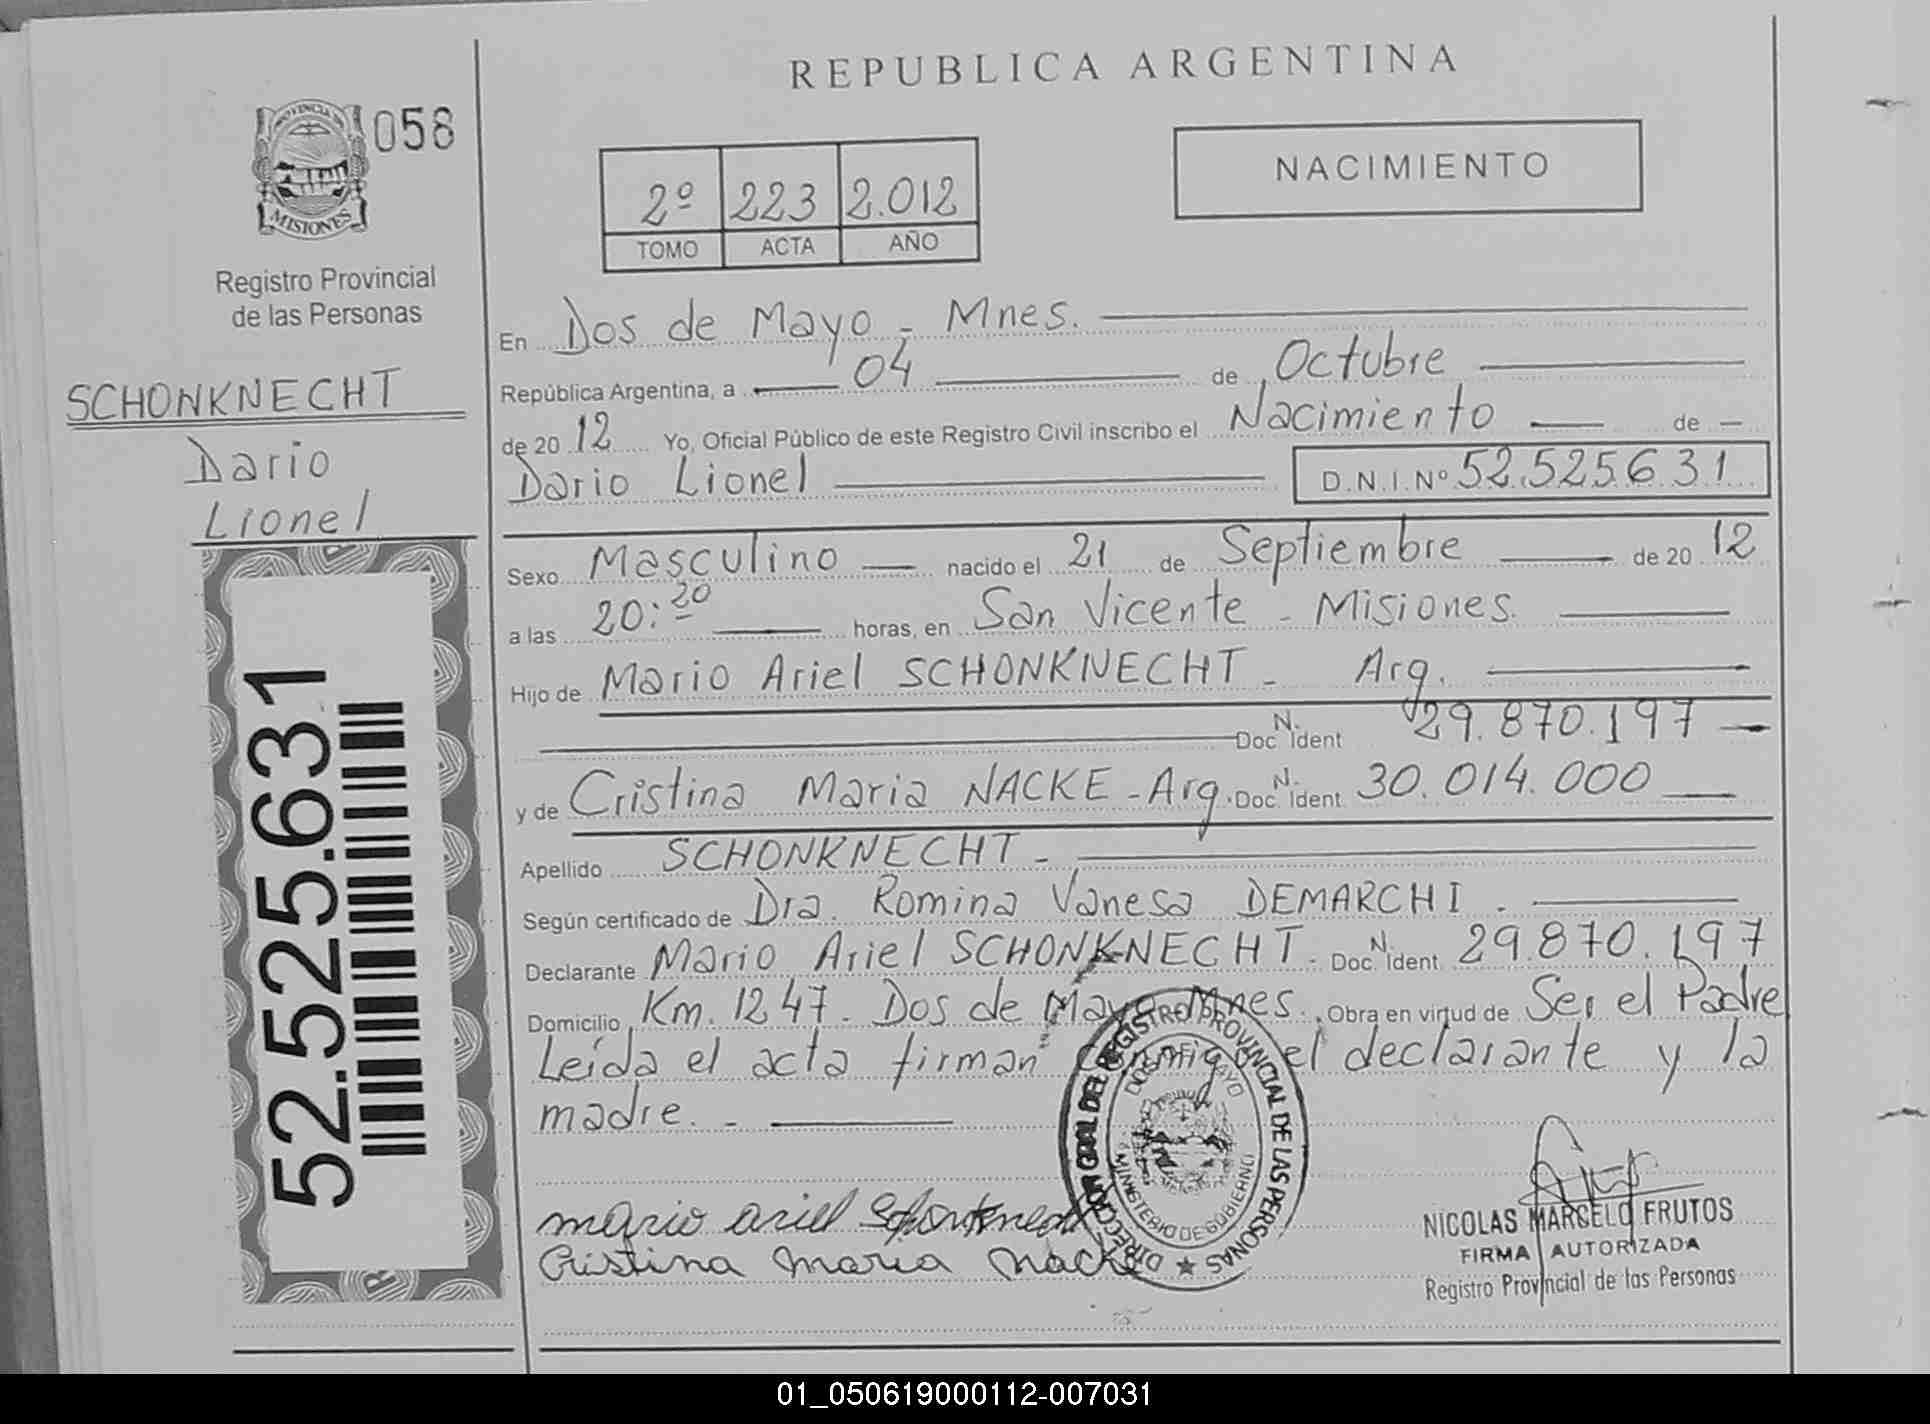 REPUBLICA ARGENTINA
PROVINCIA DE MISIONES
058
Registro Provincial
de las Personas
SCHONKNECHT
Dario
Lionel
52.525.631
2º 223 2.012
TOMO ACTA AÑO
NACIMIENTO
En Dos de Mayo - Mnes.
República Argentina, a 04 de Octubre
de 20 12 Yo, Oficial Público de este Registro Civil inscribo el Nacimiento de
Dario Lionel D.N.I. Nº 52.525.631
Sexo Masculino nacido el 21 de Septiembre de 20 12
a las 20:20 horas, en San Vicente - Misiones.
Hijo de Mario Ariel SCHONKNECHT - Arg.
Doc. N. Ident 29.870.197
y de Cristina Maria NACKE - Arg. Doc. N. Ident. 30.014.000
Apellido SCHONKNECHT -
Según certificado de Dra. Romina Vanesa DEMARCHI.
Declarante Mario Ariel SCHONKNECHT. Doc. N. Ident. 29.870.197
Domicilio Km. 1247. Dos de Mayo Mnes. Obra en virtud de Ser el Padre
Leída el acta firman conmigo el declarante y la
madre. -
mario ariel Schonknecht
Cristina Maria Nacke
DIRECCION GRAL DEL REGISTRO PROVINCIAL DE LAS PERSONAS
DOS DE MAYO
MINISTERIO DE GOBIERNO
NICOLAS MARCELO FRUTOS
FIRMA AUTORIZADA
Registro Provincial de las Personas
01_050619000112-007031